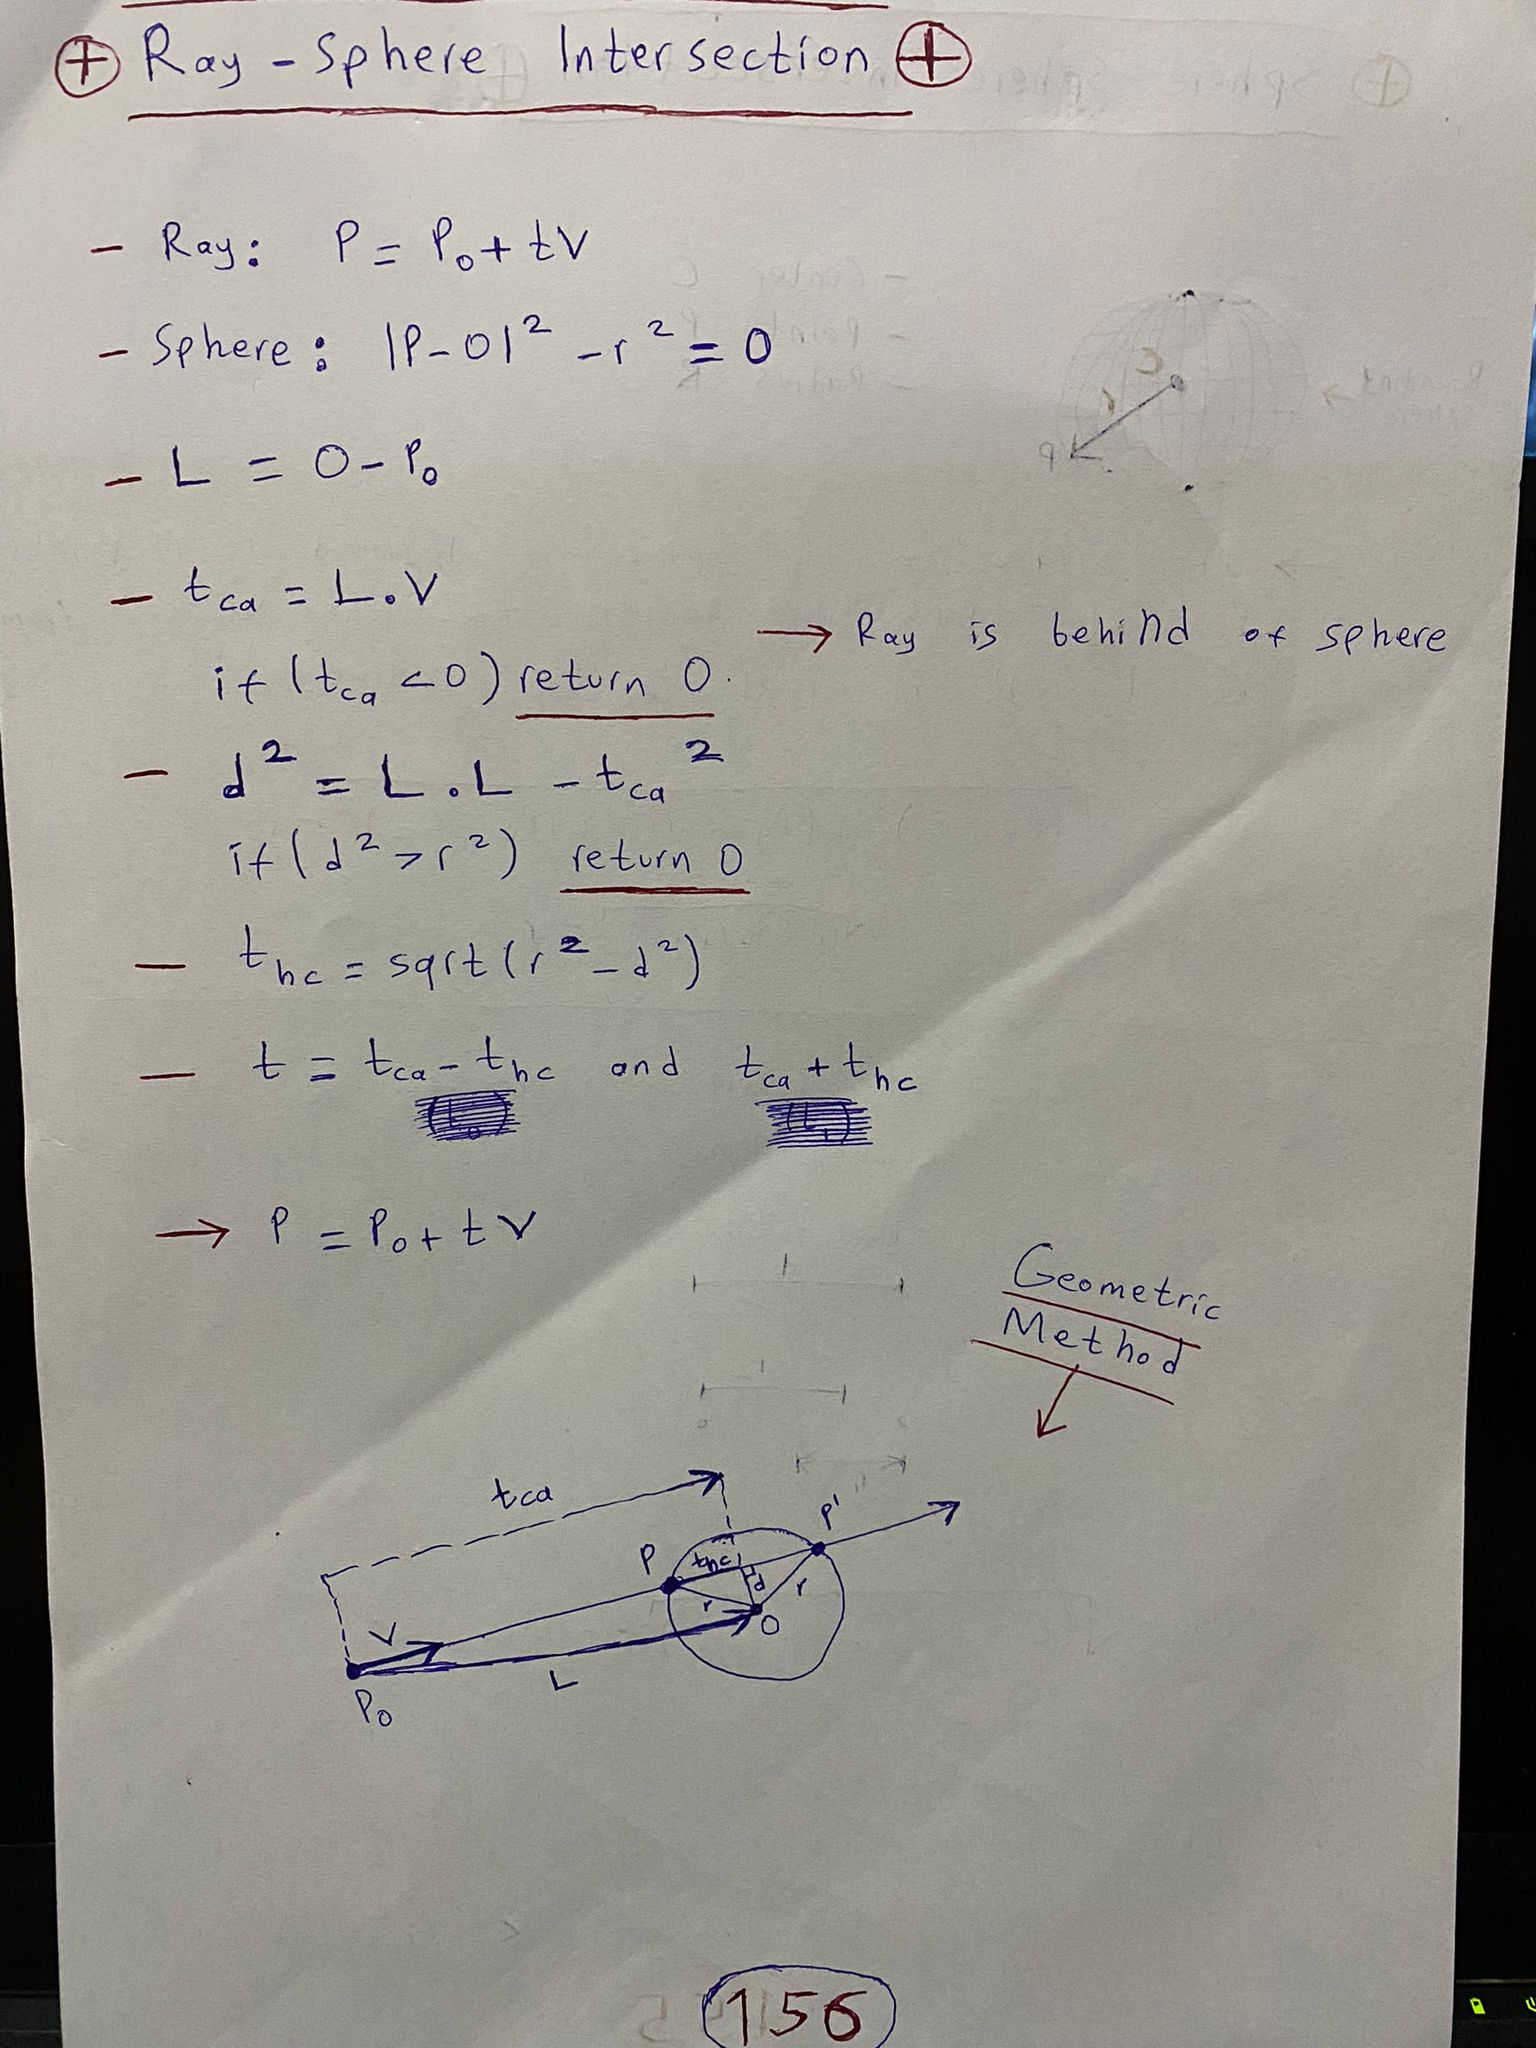 ⊕ Ray - Sphere Intersection ⊕
- Ray: P = P₀ + tV
- Sphere: |P-O|² - r² = 0
- L = O - P₀
- t_ca = L.V
→ Ray is behind of sphere
if (t_ca < 0) return 0.
- d² = L.L - t_ca²
if (d² > r²) return 0
- t_hc = sqrt(r² - d²)
- t = t_ca - t_hc and t_ca + t_hc
→ P = P₀ + tV
Geometric
Method
t_ca
P'
P
t_hc
d
r
r
V
O
L
P₀
156